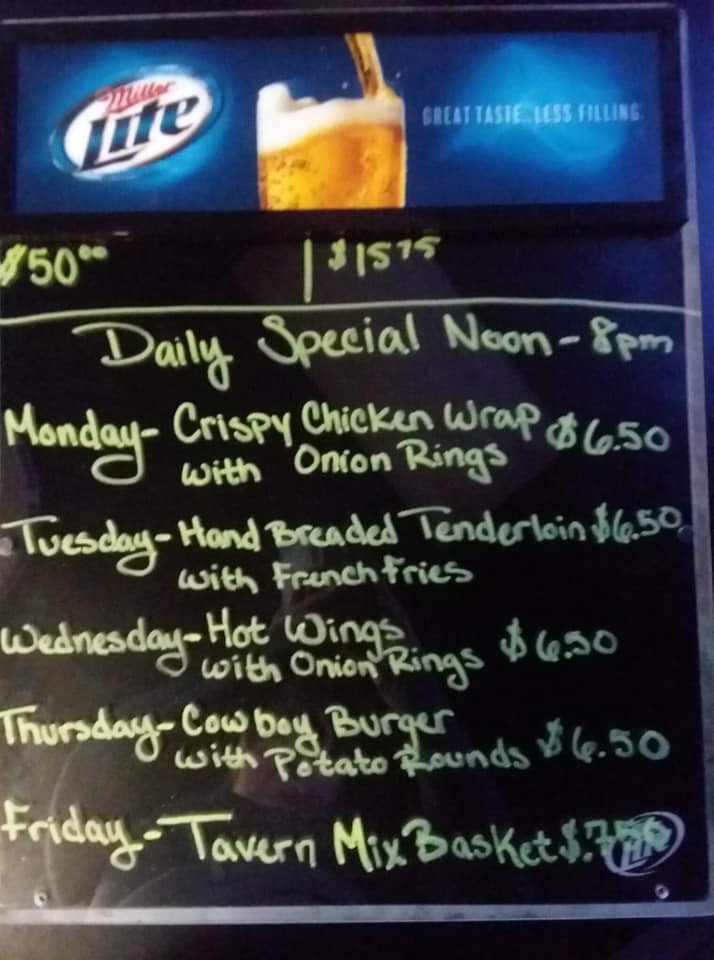 Miller
Lite
GREAT TASTE. LESS FILLING
$50.00 | $15.75
Daily Special Noon - 8pm
Monday - Crispy Chicken Wrap $6.50
with Onion Rings
Tuesday - Hand Breaded Tenderloin $6.50
with French fries
Wednesday - Hot Wings $6.50
with Onion Rings
Thursday - Cowboy Burger $6.50
with Potato Rounds
Friday - Tavern Mix Basket
Lite